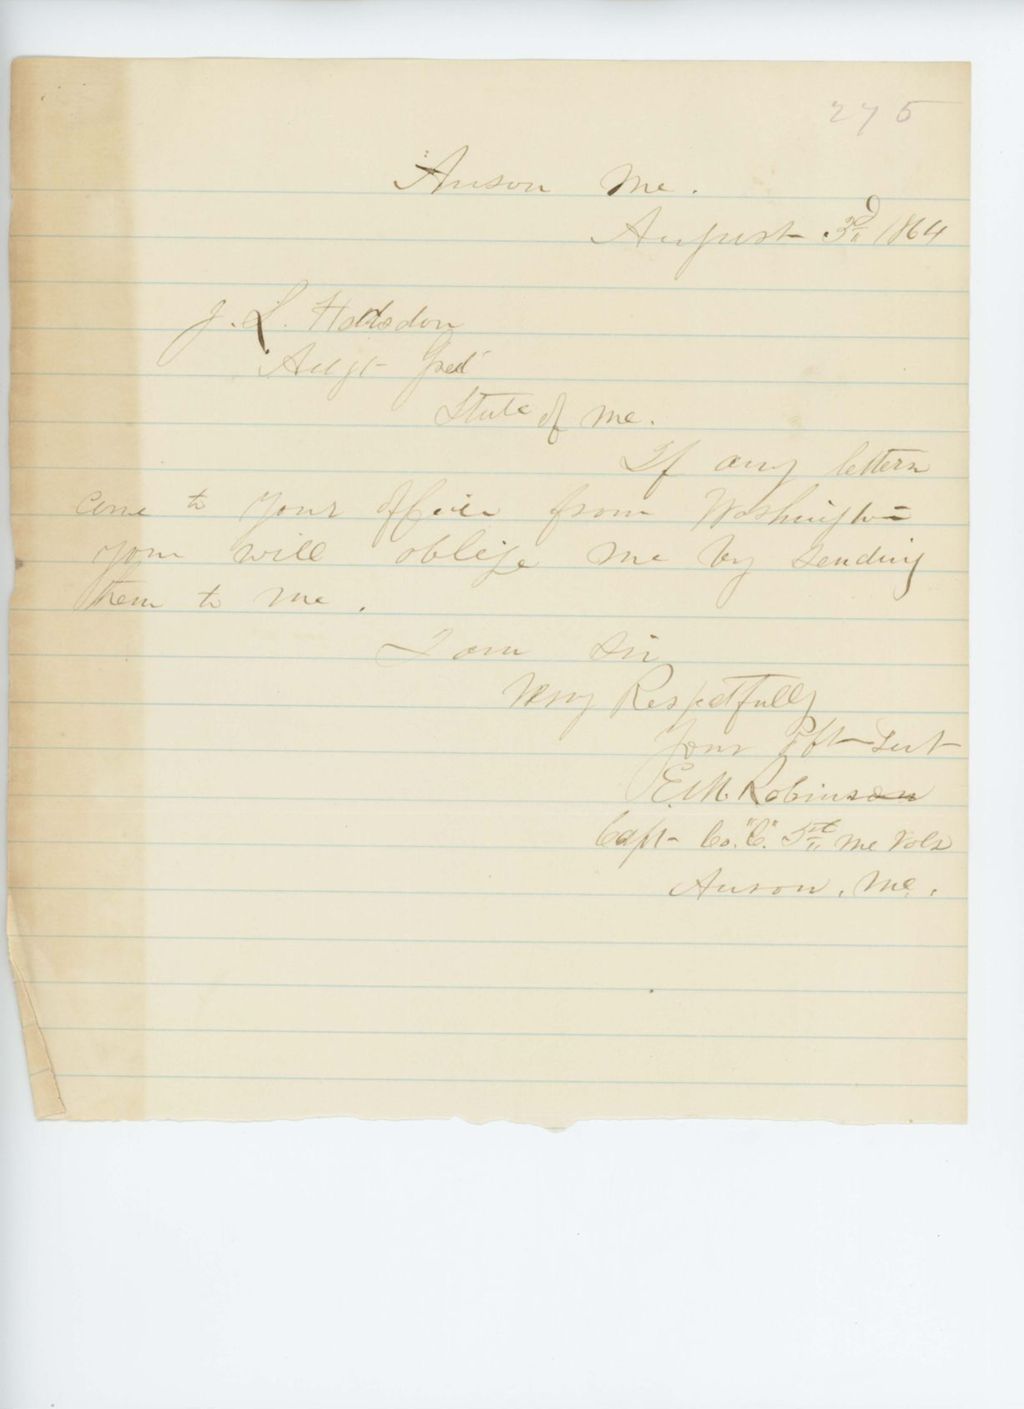 275
Anson Me.
August 3d 1864
J. L. Hodsdon
Adgt Genl
State of Me.
If any letters
come to your office from Washington
you will oblige me by sending
them to me.
I am Sir
Very Respetfully
Your Obt Servt
E. M. Robinson
Capt Co. "C". 5th Me Vols
Anson, Me.